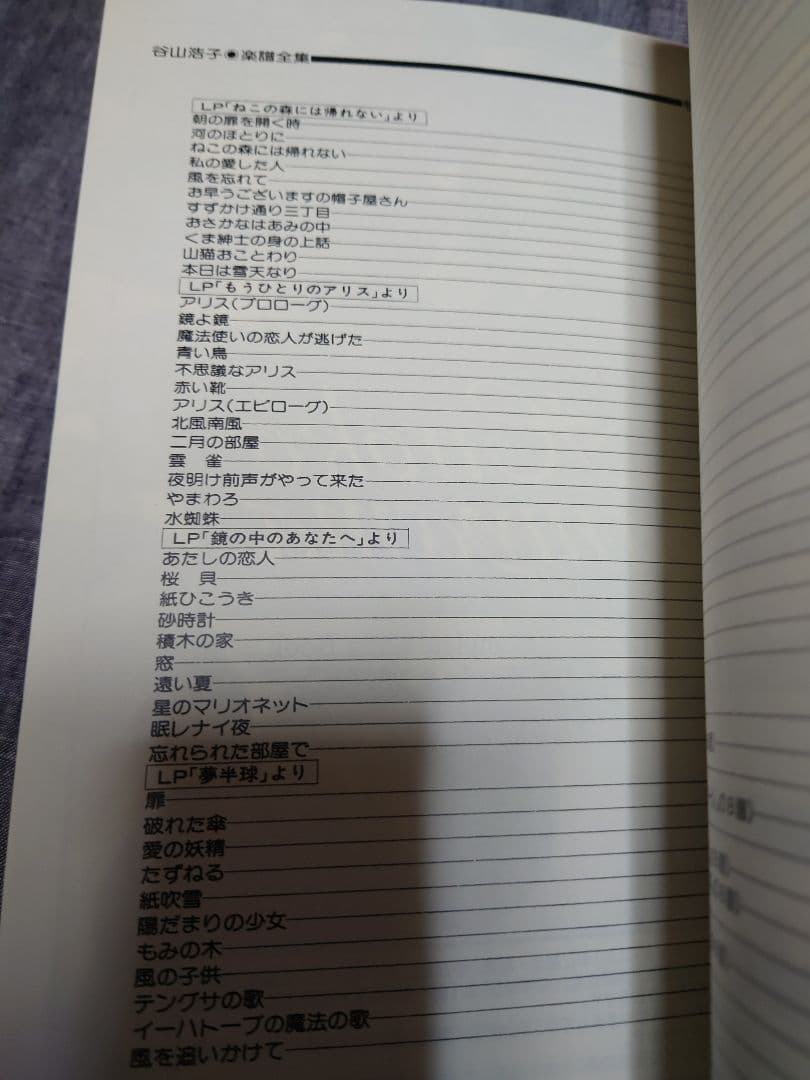 谷山浩子●楽譜全集
LP「ねこの森には帰れない」より
朝の扉を開く時
河のほとりに
ねこの森には帰れない
私の愛した人
風を忘れて
お早うございますの帽子屋さん
すずかけ通り三丁目
おさかなはあみの中
くま紳士の身の上話
山猫おことわり
本日は雪天なり
LP「もうひとりのアリス」より
アリス(プロローグ)
鏡よ鏡
魔法使いの恋人が逃げた
青い鳥
不思議なアリス
赤い靴
アリス(エピローグ)
北風南風
二月の部屋
雲　雀
夜明け前声がやって来た
やまわろ
水蜘蛛
LP「鏡の中のあなたへ」より
あたしの恋人
桜　貝
紙ひこうき
砂時計
積木の家
窓
遠い夏
星のマリオネット
眠レナイ夜
忘れられた部屋で
LP「夢半球」より
扉
破れた傘
愛の妖精
たずねる
紙吹雪
陽だまりの少女
もみの木
風の子供
テングサの歌
イーハトーブの魔法の歌
風を追いかけて